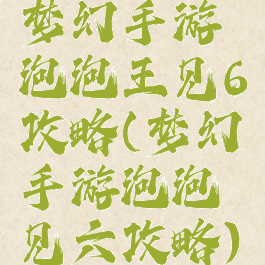 梦幻手游
泡泡王见6
攻略(梦幻
手游泡泡
见六攻略)